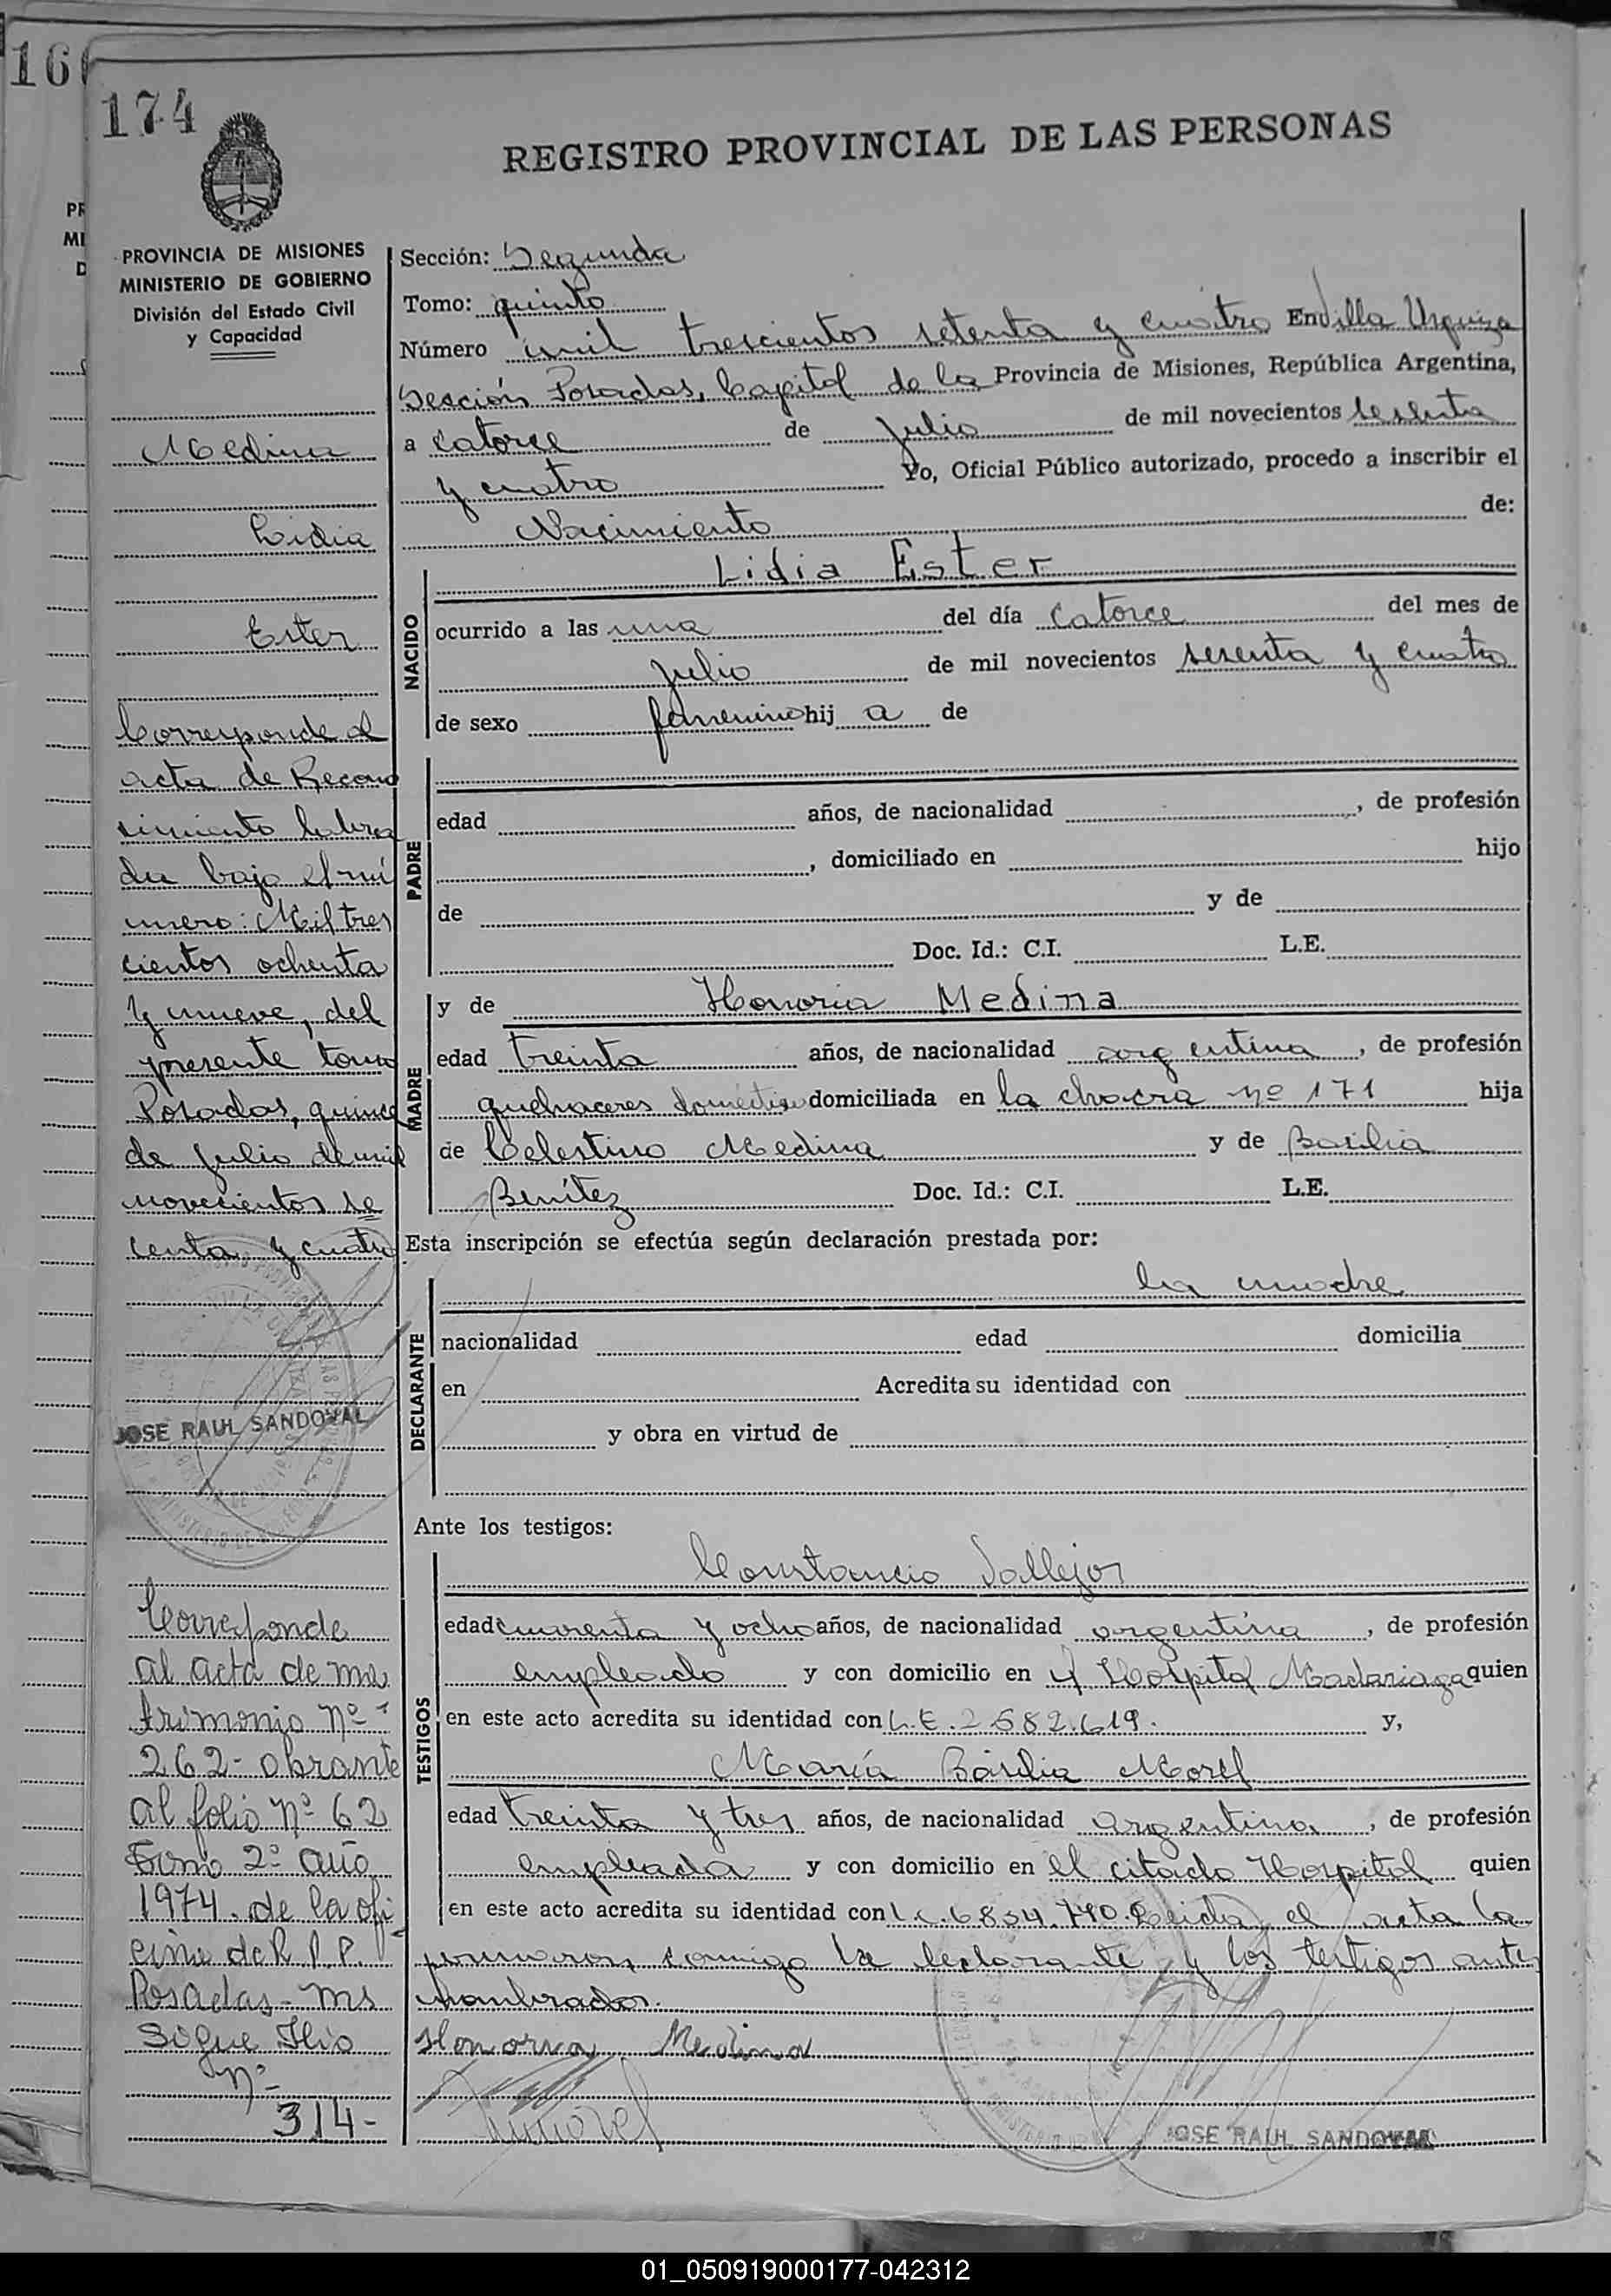 16
174
REGISTRO PROVINCIAL DE LAS PERSONAS
PROVINCIA DE MISIONES
MINISTERIO DE GOBIERNO
División del Estado Civil
y Capacidad
Medina
Lidia
Ester
Corresponde al
acta de Recono
simiento labra
da bajo el nú
mero: Mil tres
cientos ochenta
y nueve, del
presente tomo
Posadas, quince
de julio de mil
novecientos se
senta y cuatro
JOSE RAUL SANDOVAL
Corresponde
al acta de ma
trimonio Nº
262- obrante
al folio Nº 62
Tomo 2º año
1974. de la ofi
cina de R.P.P.
Posadas - Ms
Sigue Flio
Nº
314-
Sección: Segunda
Tomo: quinto
Número mil trescientos setenta y cuatro En Villa Urquiza
Sección Posadas, Capital de la Provincia de Misiones, República Argentina,
a catorce de julio de mil novecientos sesenta
y cuatro Yo, Oficial Público autorizado, procedo a inscribir el
Nacimiento de:
NACIDO
Lidia Ester
ocurrido a las una del día catorce del mes de
julio de mil novecientos sesenta y cuatro
de sexo femenino hij a de
PADRE
edad años, de nacionalidad , de profesión
, domiciliado en hijo
de y de
Doc. Id.: C.I. L.E.
MADRE
y de Honoria Medina
edad treinta años, de nacionalidad argentina, de profesión
quehaceres domésticos domiciliada en la chacra Nº 171 hija
de Celestino Medina y de Basilia
Benítez Doc. Id.: C.I. L.E.
Esta inscripción se efectúa según declaración prestada por:
DECLARANTE
la madre
nacionalidad edad domicilia
en Acredita su identidad con
y obra en virtud de
Ante los testigos:
TESTIGOS
Constancio Vallejos
edad cuarenta y ocho años, de nacionalidad argentina, de profesión
empleado y con domicilio en el Hospital Madariaga quien
en este acto acredita su identidad con L.E. 2582.619. y,
María Basilia Morel
edad treinta y tres años, de nacionalidad argentina, de profesión
empleada y con domicilio en el citado Hospital quien
en este acto acredita su identidad con L.C. 6854.790. Leida el acta la
firmaron conmigo la declarante y los testigos antes
nombrados.
Honoria Medina
JOSE RAUL SANDOVAL
01_050919000177-042312